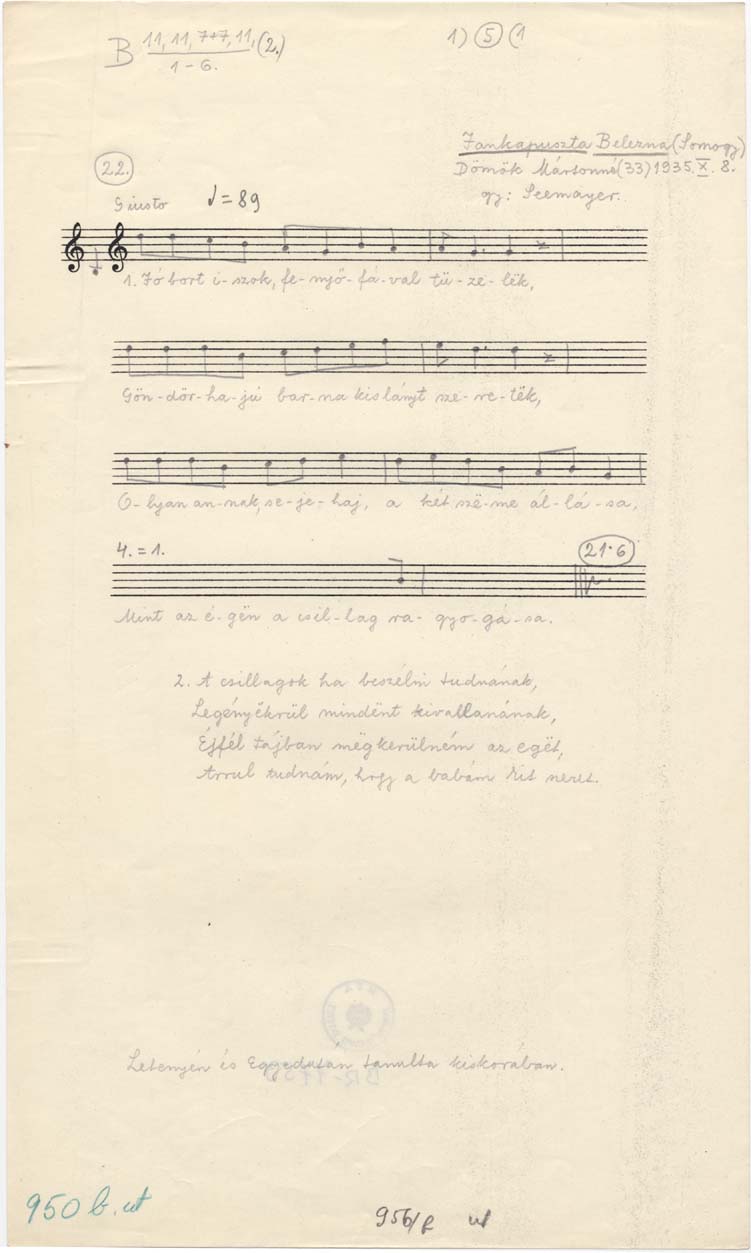 B 11, 11, 7+7, 11, (2.)
1 - 6.
1) 5 (1
Jankapuszta Belezna (Somogy)
Dömök Mártonné (33) 1935. X. 8.
gy: Seemayer.
22.
Giusto ♩ = 89
1. Jó bort i- szok, fe- nyő- fá- val tü- ze- lëk,
Gön- dör- ha- jú bar- na kislányt sze- re- tëk,
O- lyan an- nak, se- je- haj, a két szë- me ál- lá- sa,
4. = 1.
21·6
Mint az é- gën a csil- lag ra- gyo- gá- sa.
2. A csillagok ha beszélni tudnának,
Legényëkrül mindënt kivallanának,
Éjfél tájban mëgkerülném az egët,
Arrul tudnám, hogy a babám kit szeret.
Letenyén és Egyedután tanulta kiskorában.
950 b. ut
956/ ut